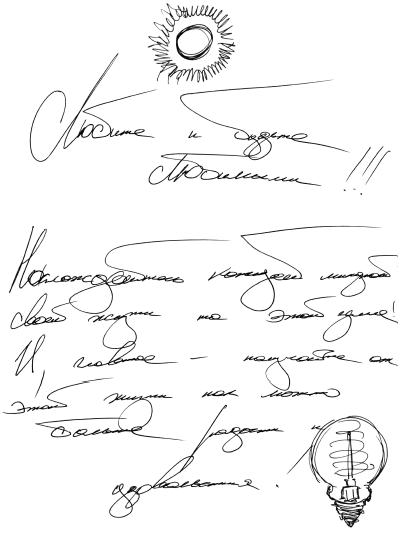 Любите и будьте
Любимыми!!!
Наслаждайтесь каждой минутой
своей жизни на этой земле!
И, главное – получайте от
этой жизни как можно
больше радости и
удовольствия.